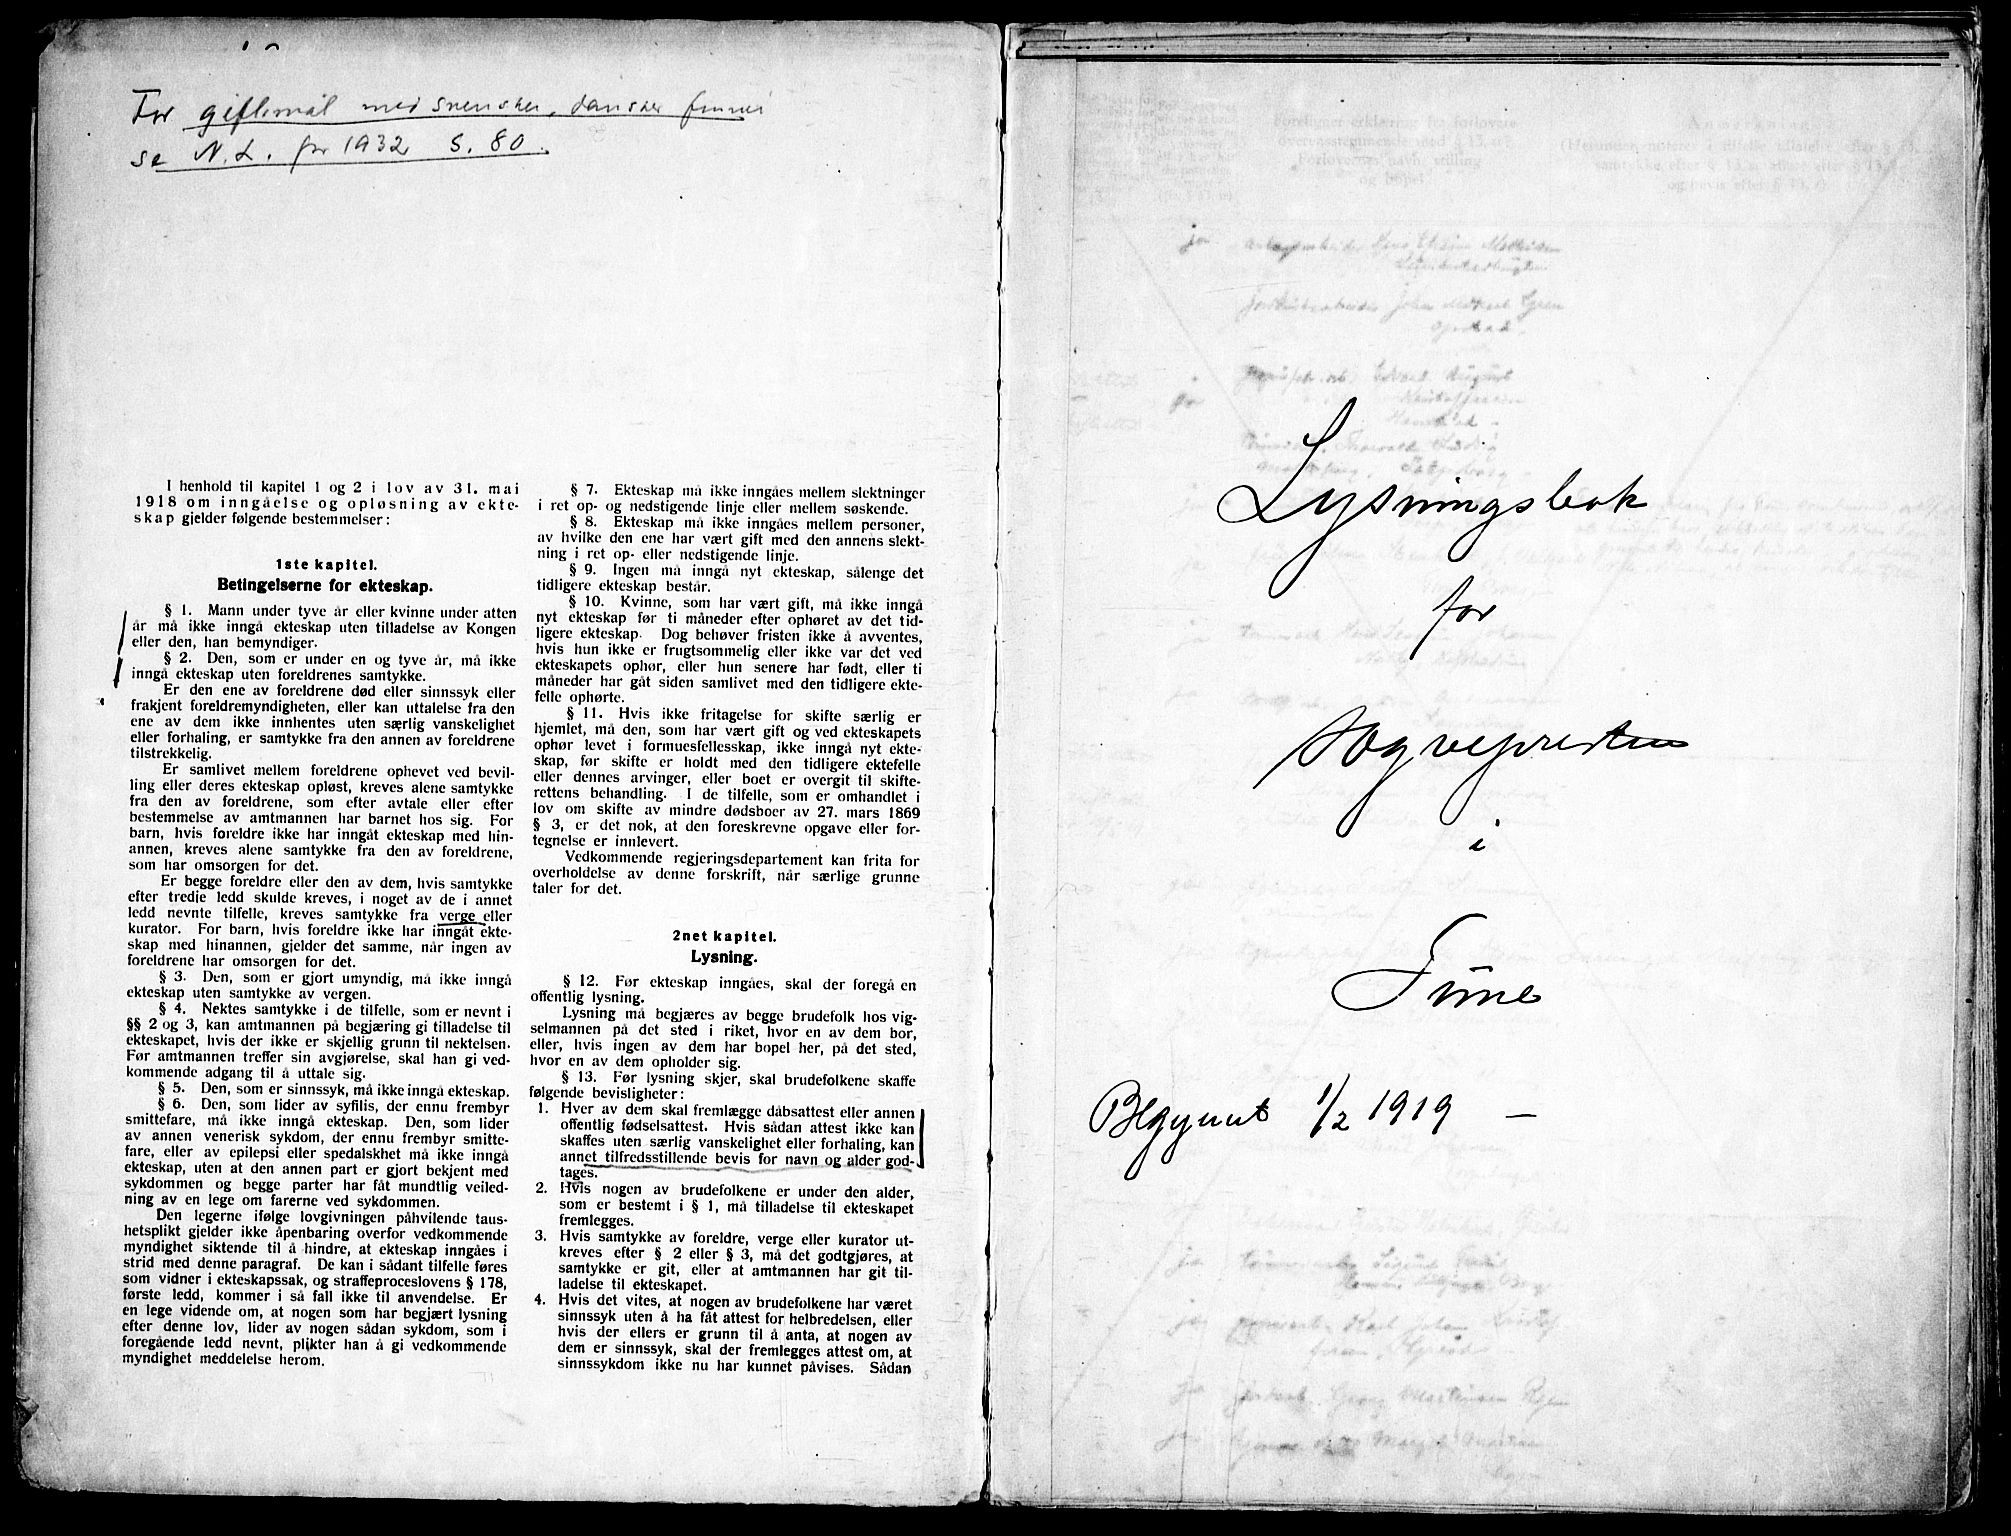 For giftemål med svensker, dansker finner
se N.L. for 1932 S. 80.
I henhold til kapitel 1 og 2 i lov av 31. mai
1918 om inngåelse og opløsning av ekte-
skap gjelder følgende bestemmelser:
1ste kapitel.
Betingelserne for ekteskap.
§ 1. Mann under tyve år eller kvinne under atten
år må ikke inngå ekteskap uten tilladelse av Kongen
eller den, han bemyndiger.
§ 2. Den, som er under en og tyve år, må ikke
inngå ekteskap uten foreldrenes samtykke.
Er den ene av foreldrene død eller sinnssyk eller
frakjent foreldremyndigheten, eller kan uttalelse fra den
ene av dem ikke innhentes uten særlig vanskelighet
eller forhaling, er samtykke fra den annen av foreldrene
tilstrekkelig.
Er samlivet mellem foreldrene ophevet ved bevil-
ling eller deres ekteskap opløst, kreves alene samtykke
fra den av foreldrene, som efter avtale eller efter
bestemmelse av amtmannen har barnet hos sig. For
barn, hvis foreldre ikke har inngåt ekteskap med hin-
annen, kreves alene samtykke fra den av foreldrene,
som har omsorgen for det.
Er begge foreldre eller den av dem, hvis samtykke
efter tredje ledd skulde kreves, i noget av de i annet
ledd nevnte tilfelle, kreves samtykke fra verge eller
kurator. For barn, hvis foreldre ikke har inngåt ekte-
skap med hinannen, gjelder det samme, når ingen av
foreldrene har omsorgen for det.
§ 3. Den, som er gjort umyndig, må ikke inngå
ekteskap uten samtykke av vergen.
§ 4. Nektes samtykke i de tilfelle, som er nevnt i
§§ 2 og 3, kan amtmannen på begjæring gi tilladelse til
ekteskapet, hvis der ikke er skjellig grunn til nektelsen.
Før amtmannen treffer sin avgjørelse, skal han gi ved-
kommende adgang til å uttale sig.
§ 5. Den, som er sinnssyk, må ikke inngå ekteskap.
§ 6. Den, som lider av syfilis, der ennu frembyr
smittefare, må ikke inngå ekteskap. Den, som lider
av annen venerisk sykdom, der ennu frembyr smitte-
fare, eller av epilepsi eller spedalskhet må ikke inngå
ekteskap, uten at den annen part er gjort bekjent med
sykdommen og begge parter har fåt mundtlig veiled-
ning av en lege om farerne ved sykdommen.
Den legerne ifølge lovgivningen påhvilende taus-
hetsplikt gjelder ikke åpenbaring overfor vedkommende
myndighet siktende til å hindre, at ekteskap inngåes i
strid med denne paragraf. De kan i sådant tilfelle føres
som vidner i ekteskapssak, og straffeproceslovens § 178,
første ledd, kommer i så fall ikke til anvendelse. Er
en lege vidende om, at nogen som har begjært lysning
efter denne lov, lider av nogen sådan sykdom, som i
foregående ledd nevnt, plikter han å gi vedkommende
myndighet meddelelse herom.
§ 7. Ekteskap må ikke inngåes mellem slektninger
i ret op- og nedstigende linje eller mellem søskende.
§ 8. Ekteskap må ikke inngåes mellem personer,
av hvilke den ene har vært gift med den annens slekt-
ning i ret op- eller nedstigende linje.
§ 9. Ingen må inngå nyt ekteskap, sålenge det
tidligere ekteskap består.
§ 10. Kvinne, som har vært gift, må ikke inngå
nyt ekteskap før ti måneder efter ophøret av det tid-
ligere ekteskap. Dog behøver fristen ikke å avventes,
hvis hun ikke er frugtsommelig eller ikke var det ved
ekteskapets ophør, eller hun senere har født, eller ti
måneder har gåt siden samlivet med den tidligere ekte-
felle ophørte.
§ 11. Hvis ikke fritagelse for skifte særlig er
hjemlet, må den, som har vært gift og ved ekteskapets
ophør levet i formuesfellesskap, ikke inngå nyt ekte-
skap, før skifte er holdt med den tidligere ektefelle
eller dennes arvinger, eller boet er overgit til skifte-
rettens behandling. I de tilfelle, som er omhandlet i
lov om skifte av mindre dødsboer av 27. mars 1869
§ 3, er det nok, at den foreskrevne opgave eller for-
tegnelse er innlevert.
Vedkommende regjeringsdepartement kan frita for
overholdelse av denne forskrift, når særlige grunne
taler for det.
2net kapitel.
Lysning.
§ 12. Før ekteskap inngåes, skal der foregå en
offentlig lysning.
Lysning må begjæres av begge brudefolk hos vig-
selmannen på det sted i riket, hvor en av dem bor,
eller, hvis ingen av dem har bopel her, på det sted,
hvor en av dem opholder sig.
§ 13. Før lysning skjer, skal brudefolkene skaffe
følgende bevisligheter:
1. Hver av dem skal fremlægge dåbsattest eller annen
offentlig fødselsattest. Hvis sådan attest ikke kan
skaffes uten særlig vanskelighet eller forhaling, kan
annet tilfredsstillende bevis for navn og alder god-
tages.
2. Hvis nogen av brudefolkene er under den alder,
som er bestemt i § 1, må tilladelse til ekteskapet
fremlegges.
3. Hvis samtykke av foreldre, verge eller kurator ut-
kreves efter § 2 eller § 3, må det godtgjøres, at
samtykke er git, eller at amtmannen har git til-
ladelse til ekteskapet.
4. Hvis det vites, at nogen av brudefolkene har været
sinnssyk uten å ha fåt attest for helbredelsen, eller
hvis der ellers er grunn til å anta, at nogen av
dem er sinnssyk, skal der fremlegges attest om, at
sinnssykdom ikke nu har kunnet påvises. Sådan
Lysningsbok
for
sognepresten
i
Tune
Begynnt 1/2 1919 –